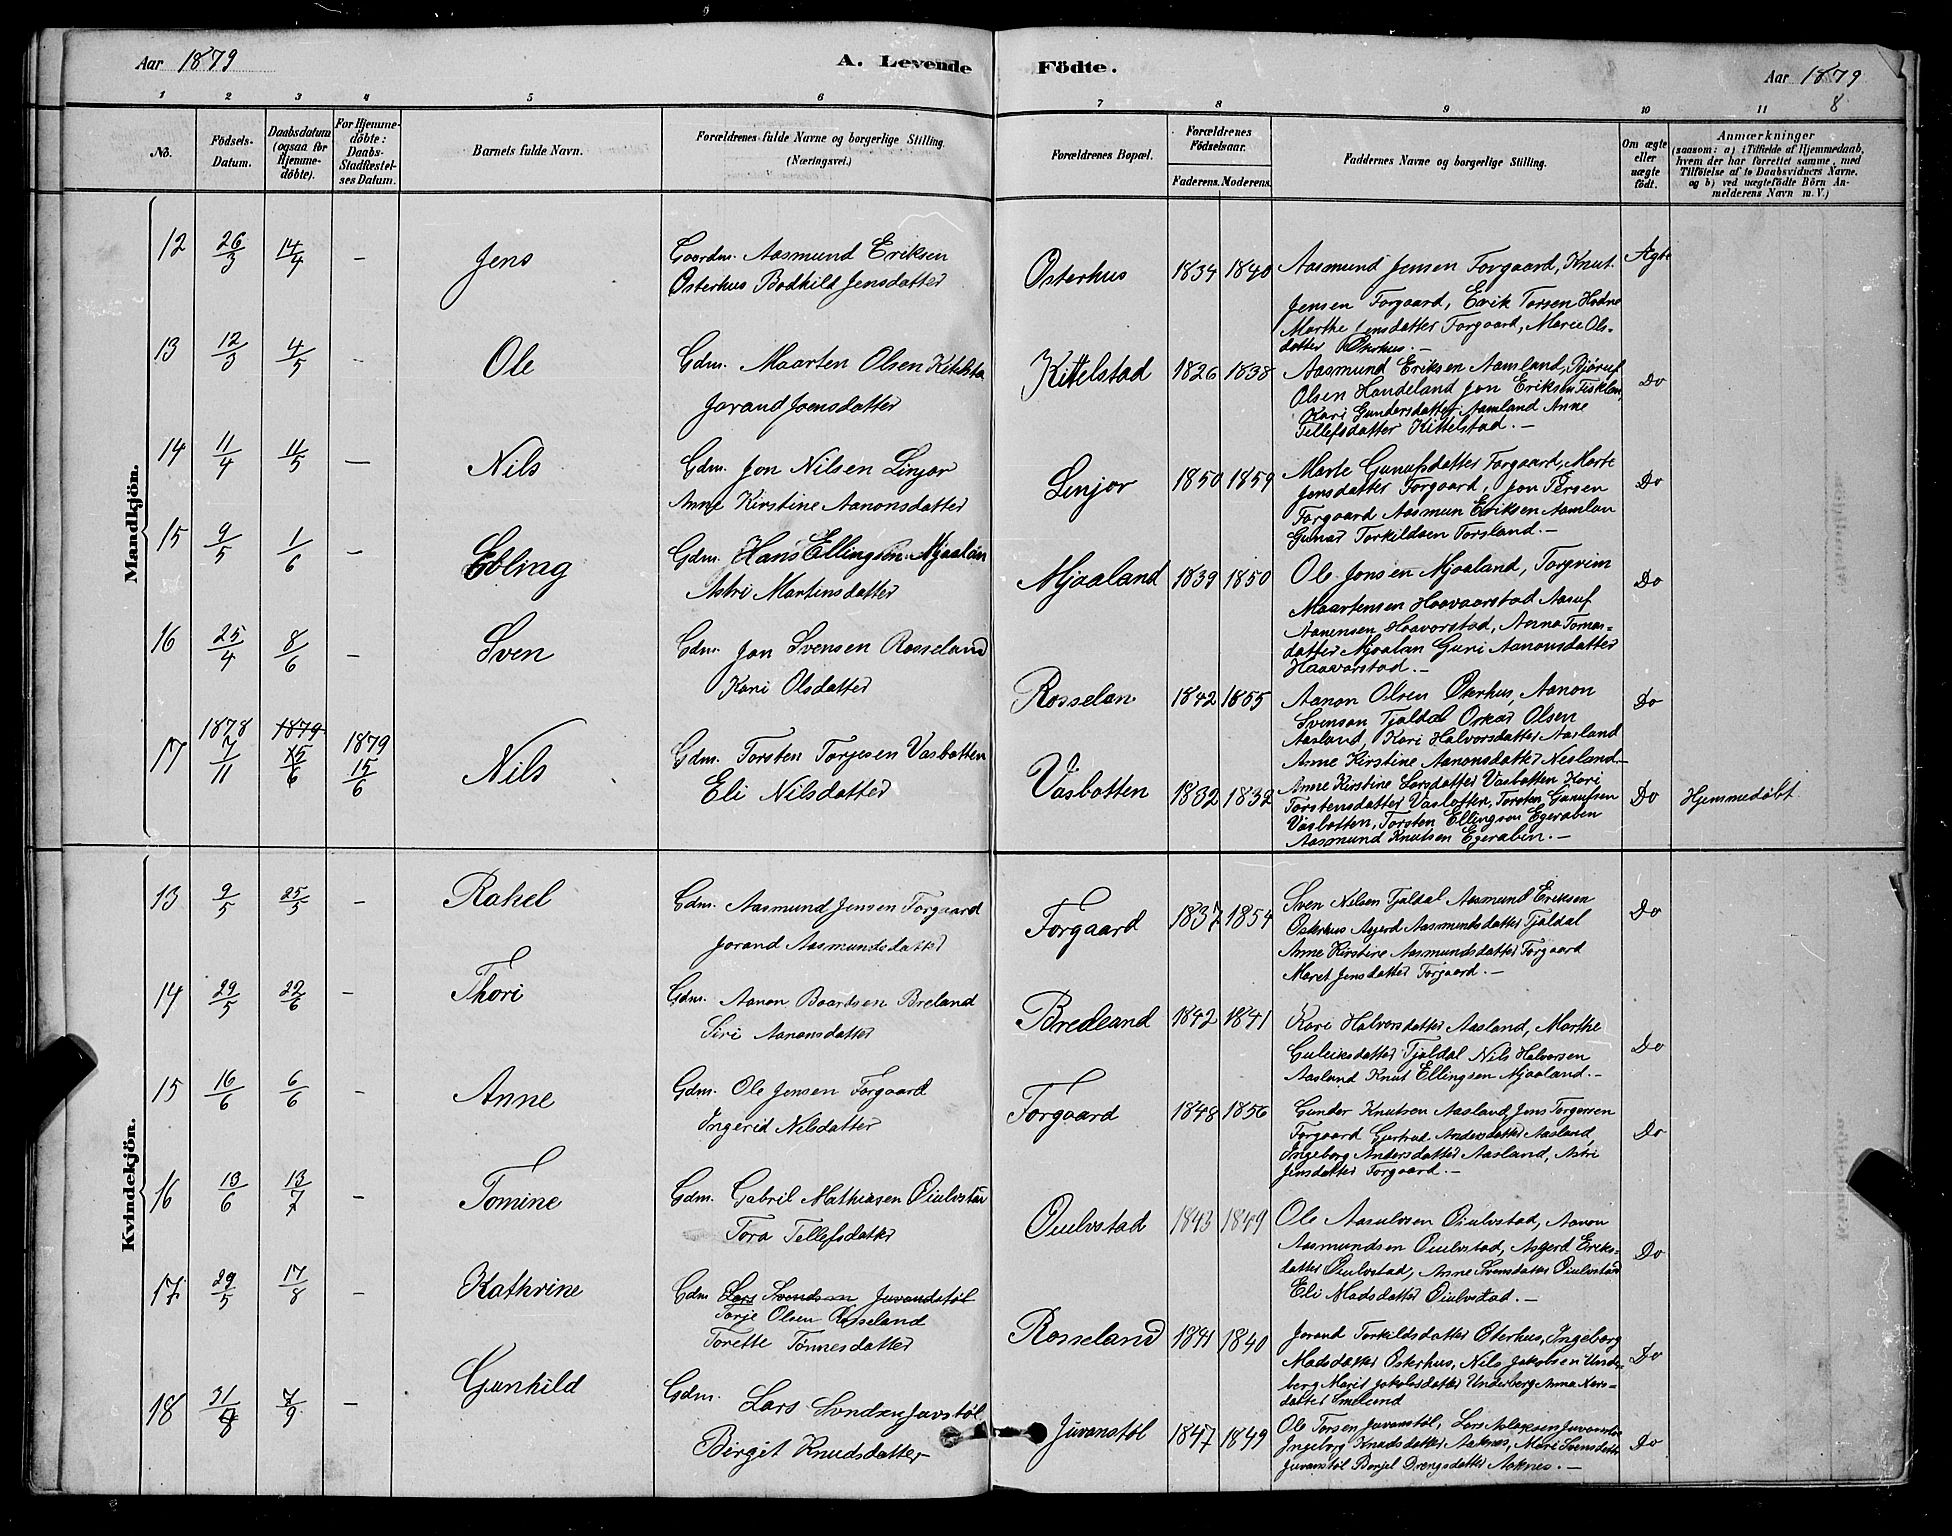 Aar 1879
A. Levende Födte.
Aar 1879
8
1 2 3 4 5 6 7 8 9 10 11
No.
Födsels-Datum.
Daabsdatum (ogsaa for Hjemme-döbte).
For Hjemme-döbte: Daabs-Stadfæstel-ses Datum.
Barnets fulde Navn.
Forældrenes fulde Navne og borgerlige Stilling. (Næringsvei.)
Forældrenes Bopæl.
Forældrenes Födselsaar.
Faderens. Moderens.
Faddernes Navne og borgerlige Stilling.
Om ægte eller uægte födt.
Anmærkninger
(saasom: a) i Tilfælde af Hjemmedaab,
hvem der har forrettet samme, med
Tilföielse af to Daabsvidners Navne.
og b) ved uægtefödte Börn An-
melderens Navn m. V.)
Mandkjön.
12 26/3 14/4 – Jens
Gaardm. Aasmund Eriksen
Osterhus Bodhild Jensdatter
Osterhus 1834 1840
Aasmund Jensen Forgaard, Knut
Jensen Forgaard, Erik Torsen Hodne
Marthe Jensdatter Forgaard, Marie Ols-
datter Osterhus. –
Ægte
13 12/3 4/5 – Ole
Gdm. Maarten Olsen Kitelsta
Jorand Joensdatter
Kittelstad 1826 1838
Aasmund Eriksen Aamland, Björuf
Olsen Haudeland Jon Eriksen
Kari Gundersdatter Aamland Anne
Tellefsdatter Kittelstad. –
Do
14 11/4 11/5 – Nils
Gdm. Jon Nilsen Linjor
Anne Kirstine Aanonsdatter
Linjor 1850 1859
Marte Gunufsdatter Forgaard, Marte
Jensdatter Forgaard, Jon Persen
Forgaard Aasmun Eriksen Aamlan
Gunar Torkildsen Torsland. –
Do
15 9/5 1/6 – Ebling
Gdm. Hans Ellingsen Mjaalan
Astri Martinsdatter
Mjaaland 1839 1850
Ole Jonsen Mjaaland, Torgrim
Maartensen Haavaarstad Aasuf
Aanensen Haavorstad, Anna Tomas-
datter Mjaalan Guri Aanonsdatter
Haavarstad. –
Do
16 25/4 8/6 – Sven
Gdm. Jon Svensen Rosseland
Kari Olsdatter
Rosselan 1842 1855
Aanon Olsen Osterhus, Aanon
Svenson Tjaldal Oskar Olsen
Aasland, Kari Halvorsdatter Aasland
Anne Kirstine Aanonsdatter Nesland –
Do
17 1878 7/11 1879 15/6 1879 15/6 Nils
Gdm. Torsten Torjusen Vasbotten
Eli Nilsdatter
Vasbotten 1832 1832
Anne Kirstine Larsdatter Vasbotten Kari
Torstensdatter Vasbotten, Torsten Gunufsen
Vasbotten, Torsten Ellingson Egeraben
Aasmund Knutsen Egeraben. –
Do Hjemmedøbt
Kvindekjön.
13 9/5 25/5 – Rahel
Gdm. Aasmund Jensen Forgaard
Jorand Aasmundsdatter
Forgaard 1837 1854
Sven Nilsen Tjaldal Aasmund Eriksen
Osterhus Asgerd Aasmundsdatter Tjaldal
Anne Kirstine Aasmundsdatter Forgaard
Maret Jensdatter Forgaard. –
Do
14 29/5 22/6 – Thori
Gdm. Aanon Baardsen Breland
Siri Aanonsdatter
Bredeland 1842 1841
Kari Halvorsdatter Aasland, Marthe
Guleiksdatter Tjaldal Nils Halvorsen
Aasland Knut Ellingsen Mjaaland. –
Do
15 16/6 6/6 – Anne
Gdm. Ole Jensen Forgaard
Ingerid Nilsdatter
Forgaard 1848 1856
Gunder Knutsen Aasland, Jens Torgersen
Forgaard Gertrud Andersdatter Aasland
Ingeborg Andersdatter Aasland, Astri
Jensdatter Forgaard. –
Do
16 13/6 13/7 – Tomine
Gdm. Gabril Mathiasen Oiulvstan
Tora Tellefsdatter
Oiulvstad 1843 1849
Ole Aasulvsen Oiulvstad, Aanon
Aasmundsen Oiulvstad, Asgerd Eriks-
datter Oiulvstad, Anne Svensdatter Oiulvstad
Eli Madsdatter Oiulvstad. –
Do
17 29/5 17/8 – Kathrine
Gdm Lars Svendsen Juvandstöl
Torje Olsen Rosseland
Torette Tönnesdatter
Rosseland 1841 1840
Jorand Torkildsdatter Oterhus, Ingeborg
Madsdatter Osterhus, Nils Jakobsen Under-
berg Marit Jakobsdatter Underberg Anna Lars-
datter Smeland
Do
18 31/8 7/9 – Gunhild
Gdm. Lars Svndsen Juvstöl
Birgit Knudsdatter
Juvanstöl 1847 1849
Ole Torsen Juvanstöl, Lars Aslaksen Juvanstöl
Ingeborg Knudsdatter Aaknes, Mari Svensdatter
Juvanstöl Borjel Drengsdatter Aaknes. –
Do